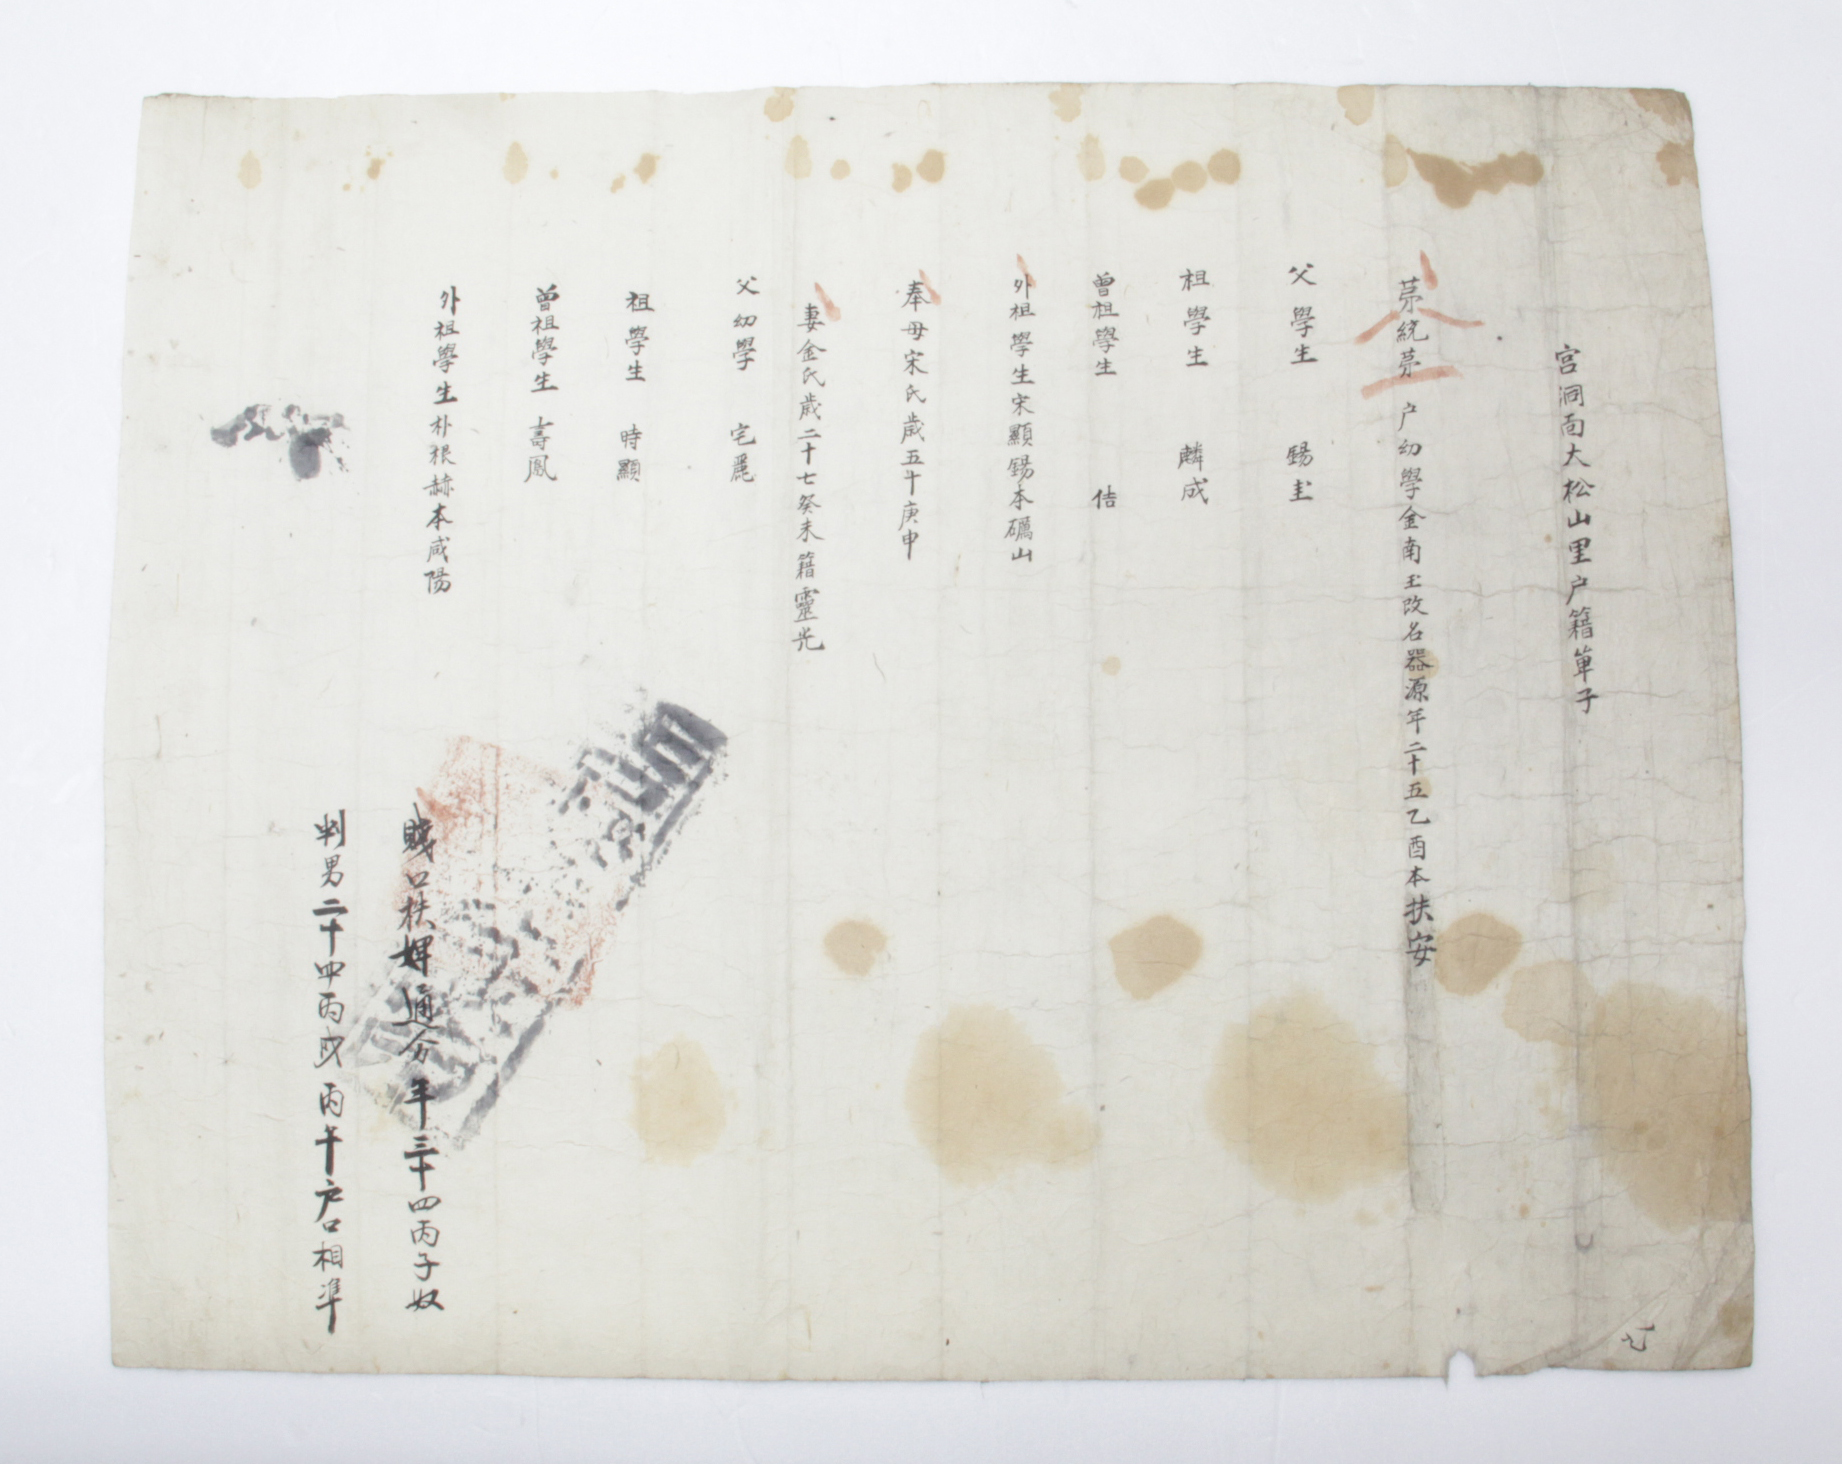 宮洞面大松山里户籍單子
苐統苐 户幼學金南玉改名器源年二十五乙酉本扶安
父學生 錫圭
祖學生 麟成
曾祖學生 佶
外祖學生宋顯錫本礪山
奉母宋氏歲五十庚申
妻金氏歲二十七癸未籍靈光
父幼學 宅麗
祖學生 時顯
曾祖學生 壽鳳
外祖學生朴根赫本咸陽
賤口秩婢通分年三十四丙子奴
判男二十四丙戌丙午户口相準